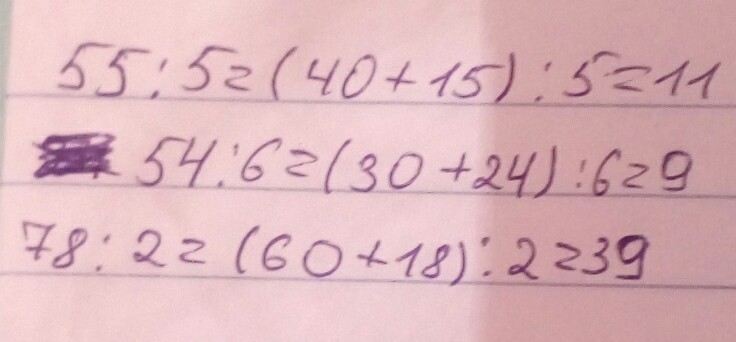 55:5=(40+15):5=11
54:6=(30+24):6=9
78:2=(60+18):2=39